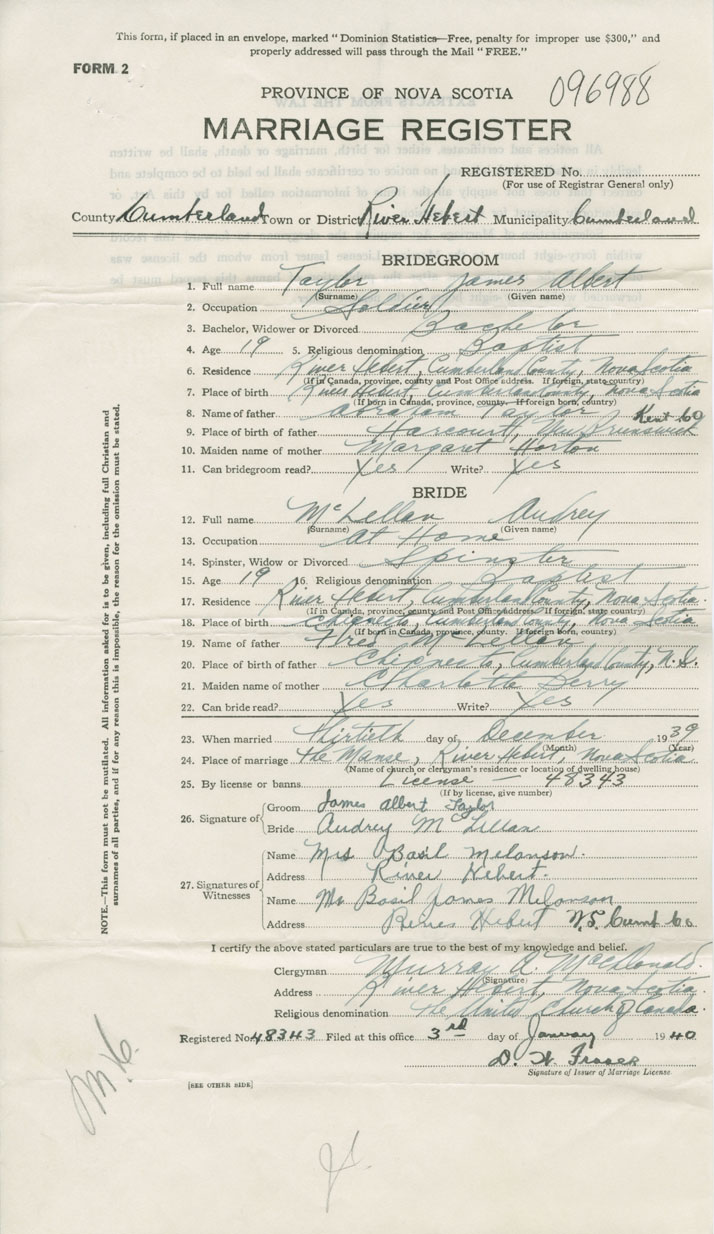 This form, if placed in an envelope, marked "Dominion Statistics—Free, penalty for improper use $300," and
properly addressed will pass through the Mail "FREE."
FORM 2
PROVINCE OF NOVA SCOTIA 096988
MARRIAGE REGISTER
REGISTERED No.
(For use of Registrar General only)
County Cumberland Town or District River Hebert Municipality Cumberland
BRIDEGROOM
1. Full name Taylor James Albert
(Surname) (Given name)
2. Occupation Soldier
3. Bachelor, Widower or Divorced Bachelor
4. Age 19 5. Religious denomination Baptist
6. Residence River Hebert, Cumberland County, Nova Scotia
(If in Canada, province, county and Post Office address. If foreign, state country)
7. Place of birth River Hebert, Cumberland County, Nova Scotia
(If born in Canada, province, county. If foreign born, country)
8. Name of father Abraham Taylor Kent Co
9. Place of birth of father Harcourt, New Brunswick
10. Maiden name of mother Margaret Horton
11. Can bridegroom read? Yes Write? Yes
BRIDE
12. Full name McLellan Audrey
(Surname) (Given name)
13. Occupation At Home
14. Spinster, Widow or Divorced Spinster
15. Age 19 16. Religious denomination Baptist
17. Residence River Hebert, Cumberland County, Nova Scotia.
(If in Canada, province, county and Post Office address. If foreign, state country)
18. Place of birth Chignecto, Cumberland County, Nova Scotia
(If born in Canada, province, county. If foreign born, country)
19. Name of father Fred McLellan
20. Place of birth of father Chignecto, Cumberland County, N.S.
21. Maiden name of mother Charlotte Berry
22. Can bride read? Yes Write? Yes
23. When married thirtieth day of December 1939
(Month) (Year)
24. Place of marriage the Manse, River Hebert, Nova Scotia
(Name of church or clergyman's residence or location of dwelling house)
25. By license or banns License — 48343
(If by license, give number)
26. Signature of Groom James Albert Taylor
Bride Audrey McLellan
27. Signatures of Witnesses
Name Mrs Basil Melanson.
Address River Hebert.
Name Mr Basil James Melanson
Address River Hebert N.S. Cumb Co
I certify the above stated particulars are true to the best of my knowledge and belief.
Clergyman Murray A. MacDonald.
(Signature)
Address River Hebert, Nova Scotia.
Religious denomination the United Church of Canada.
Registered No. 48343 Filed at this office 3rd day of January 1940
D. W. Fraser
Signature of Issuer of Marriage License.
[SEE OTHER SIDE]
NOTE.—This form must not be mutilated. All information asked for is to be given, including full Christian and
surnames of all parties, and if for any reason this is impossible, the reason for the omission must be stated.